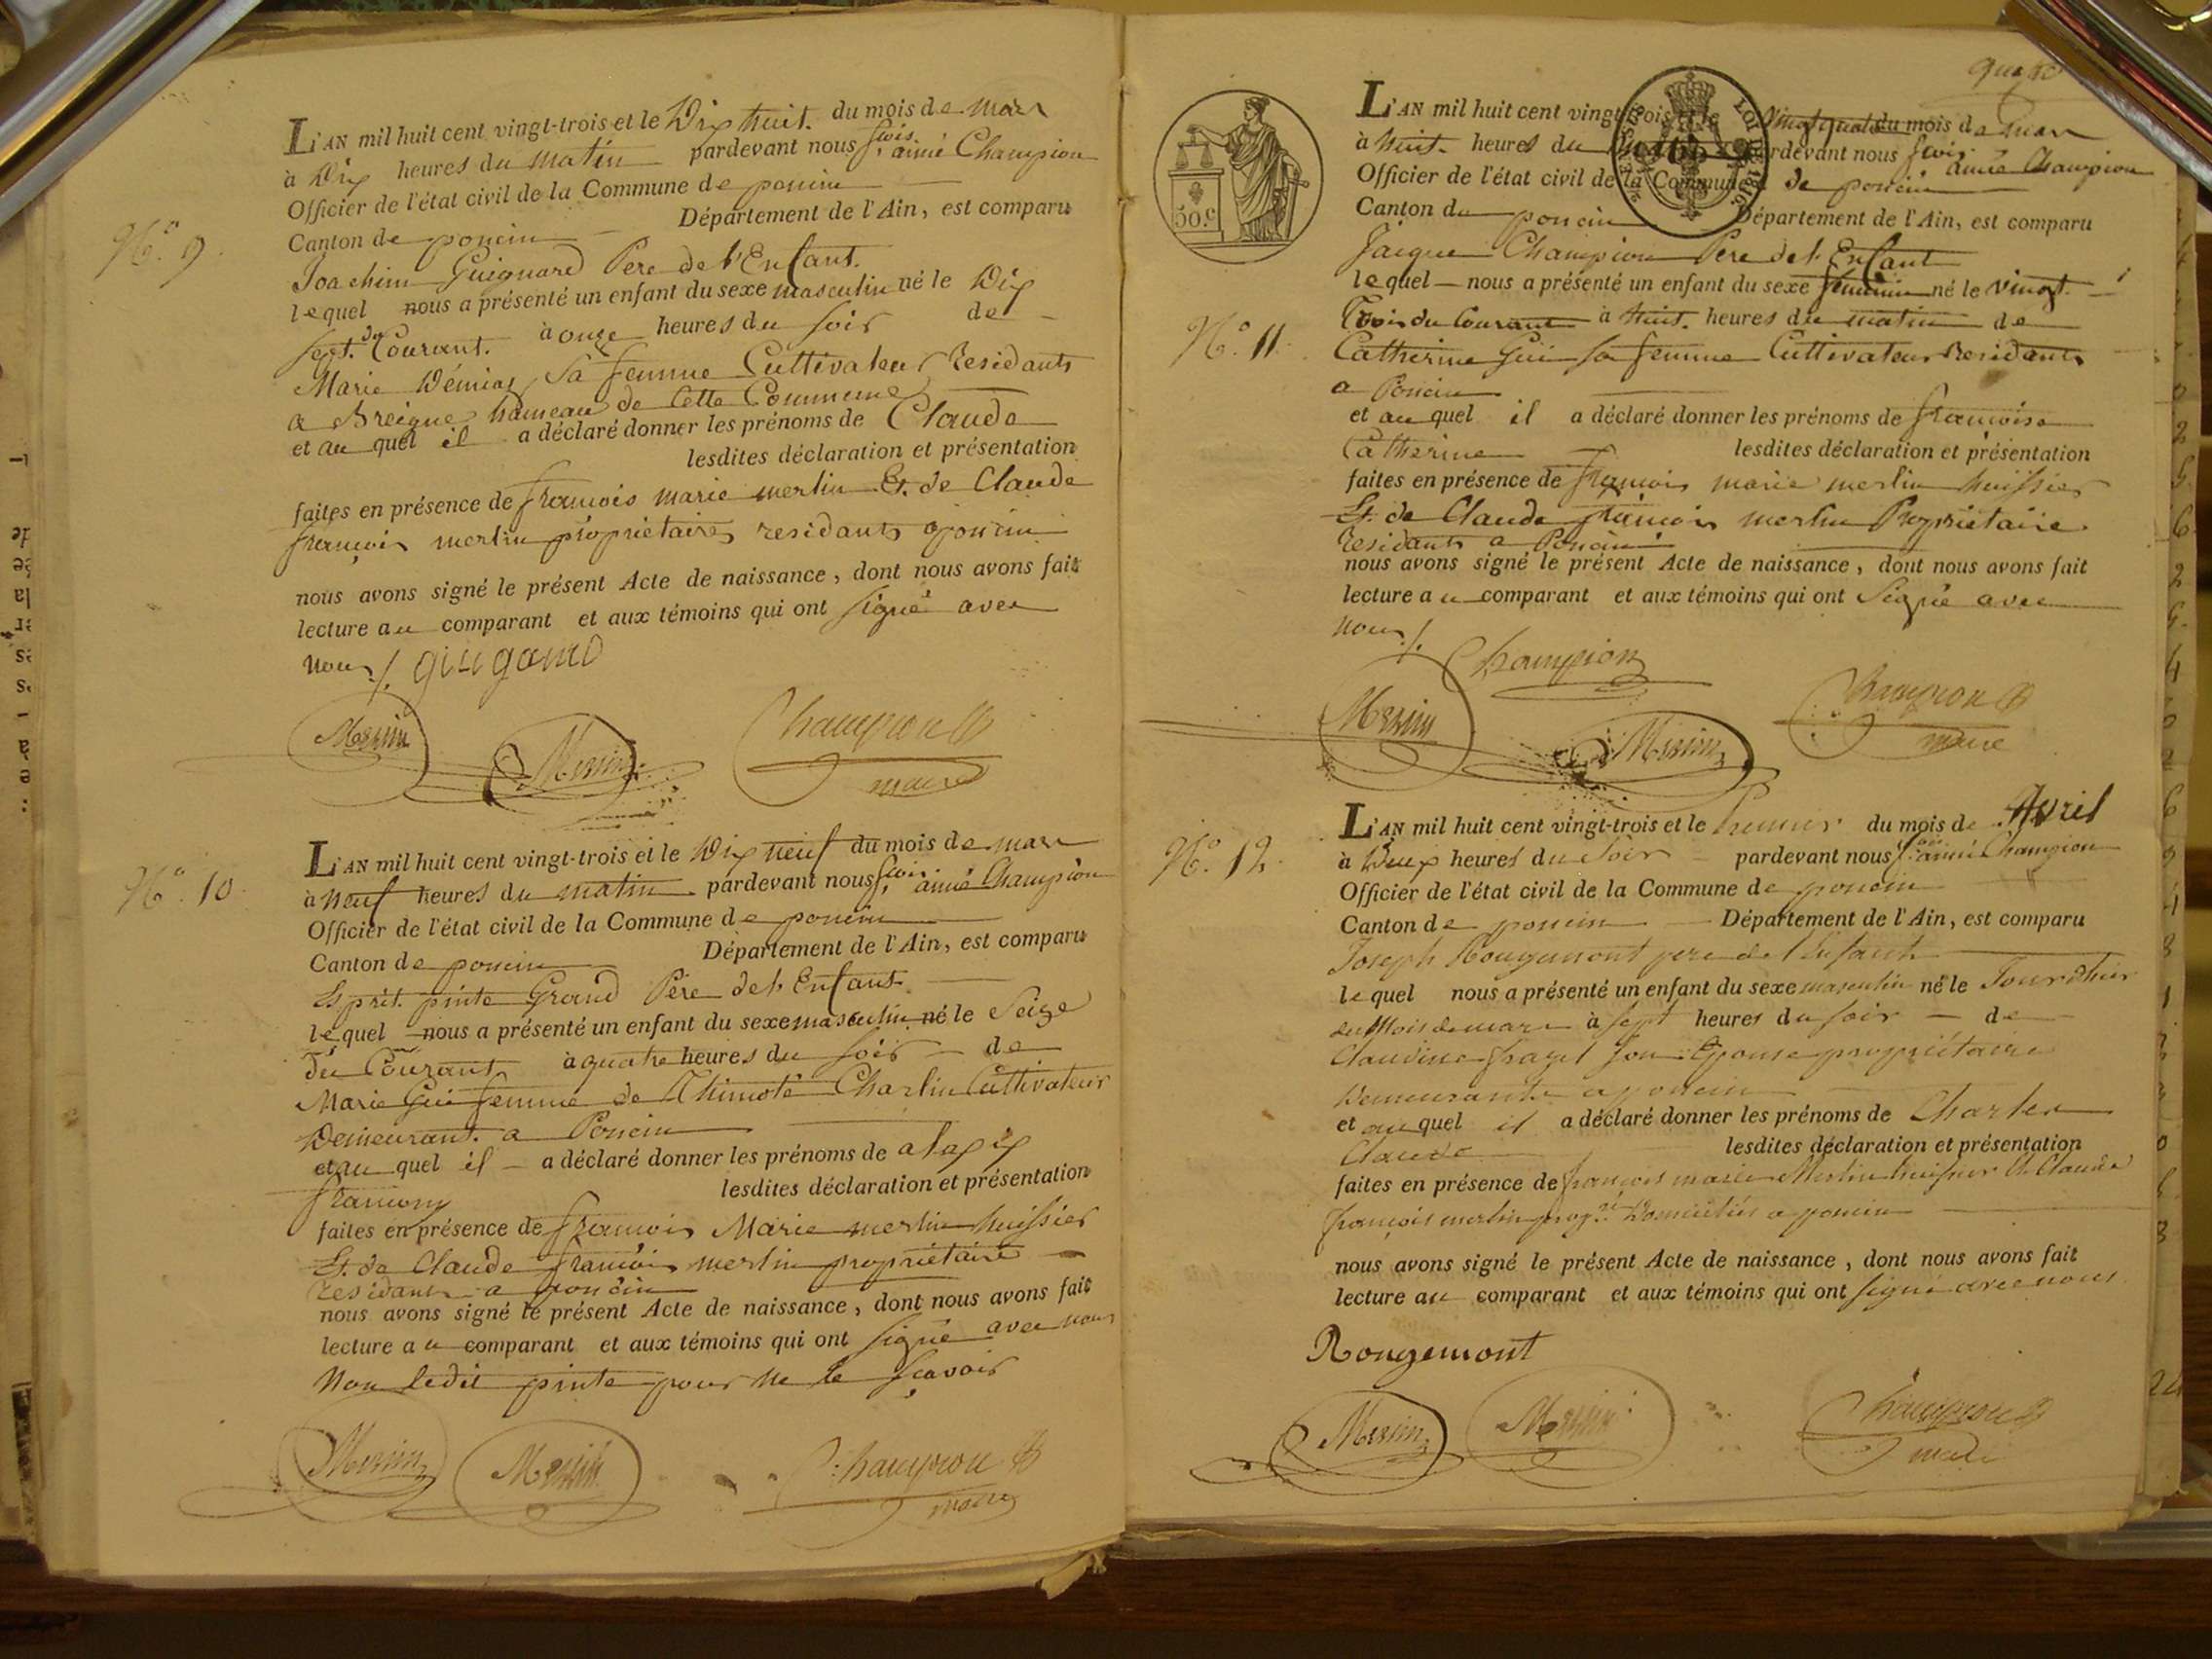 N.o 9.
L'AN mil huit cent vingt-trois et le Dix huit. du mois de mars
à Dix heures du matin pardevant nous f.çois aimé Champion
Officier de l'état civil de la Commune de poncin
Canton de poncin Département de l'Ain, est comparu
Joachim Guignard Pere de l'Enfant.
lequel nous a présenté un enfant du sexe masculin né le Dix
sept. du Courant. à onze heures du soir de
Marie sa femme Cultivateurs residants
a Breigne hameau de Cette Commune
et au quel il a déclaré donner les prénoms de Claude
lesdites déclaration et présentation
faites en présence de francois marie merlin Et. de Claude
françois merlin propriétaires residants a poncin
nous avons signé le présent Acte de naissance, dont nous avons fait
lecture au comparant et aux témoins qui ont signé avec
nous/.
Merlin Merlin Champion
maire
N.o 10.
L'AN mil huit cent vingt-trois et le Dix neuf du mois de mars
à neuf heures du matin pardevant nous f.çois aimé Champion
Officier de l'état civil de la Commune de poncin
Canton de poncin Département de l'Ain, est comparu
Esprit pinte Grand Pére de l'Enfant.
lequel nous a présenté un enfant du sexe masculin né le Seize
du Courant à quatre heures du soir de
Marie Gui femme de Thimoté Charlin Cultivateur
Demeurant. a Poncin
et au quel il a déclaré donner les prénoms de alexix
francois lesdites déclaration et présentation
faites en présence de francois Marie merlin huissier
Et. de Claude francois merlin propriétaire
residants a poncin
nous avons signé le présent Acte de naissance, dont nous avons fait
lecture au comparant et aux témoins qui ont signé avec nous
Non Ledit pinte pour ne le sçavoir
Merlin Merlin Champion
maire
L'AN mil huit cent vingt-trois et le vingt quatre du mois de mars
à huit heures du pardevant nous f.çois aimé Champion
Officier de l'état civil de la Commune de poncin
Canton du poncin Département de l'Ain, est comparu
Jacque Champion Pere de l'Enfant
lequel nous a présenté un enfant du sexe feminin né le vingt.
Trois du Courant à huit. heures du matin de
N.o 11.
Catherine Gui sa femme Cultivateurs Residants
a Poncin
et au quel il a déclaré donner les prénoms de francoise
Catherine lesdites déclaration et présentation
faites en présence de francois marie merlin huissier
Et. de Claude francois merlin Propriétaire
residants a Poncin
nous avons signé le présent Acte de naissance, dont nous avons fait
lecture au comparant et aux témoins qui ont signé avec
nous/.
Champion
Merlin Merlin Champion
maire
50.c
N.o 12.
L'AN mil huit cent vingt-trois et le premier du mois de Avril
à Deux heures du soir pardevant nous f.çois aimé Champion
Officier de l'état civil de la Commune de poncin
Canton de poncin Département de l'Ain, est comparu
Joseph Rougemont pere de l'enfant
lequel nous a présenté un enfant du sexe masculin né le Jour d'hier
du Mois de mars à sept heures du soir de
Claudine son Epouse propriétaire
Demeurants a poncin
et au quel il a déclaré donner les prénoms de Charles
Claude lesdites déclaration et présentation
faites en présence de francois marie Merlin huissier & Claude
françois merlin prop.re Domiciliés a poncin
nous avons signé le présent Acte de naissance, dont nous avons fait
lecture au comparant et aux témoins qui ont signé avec nous
Rougemont
Merlin Merlin Champion
maire